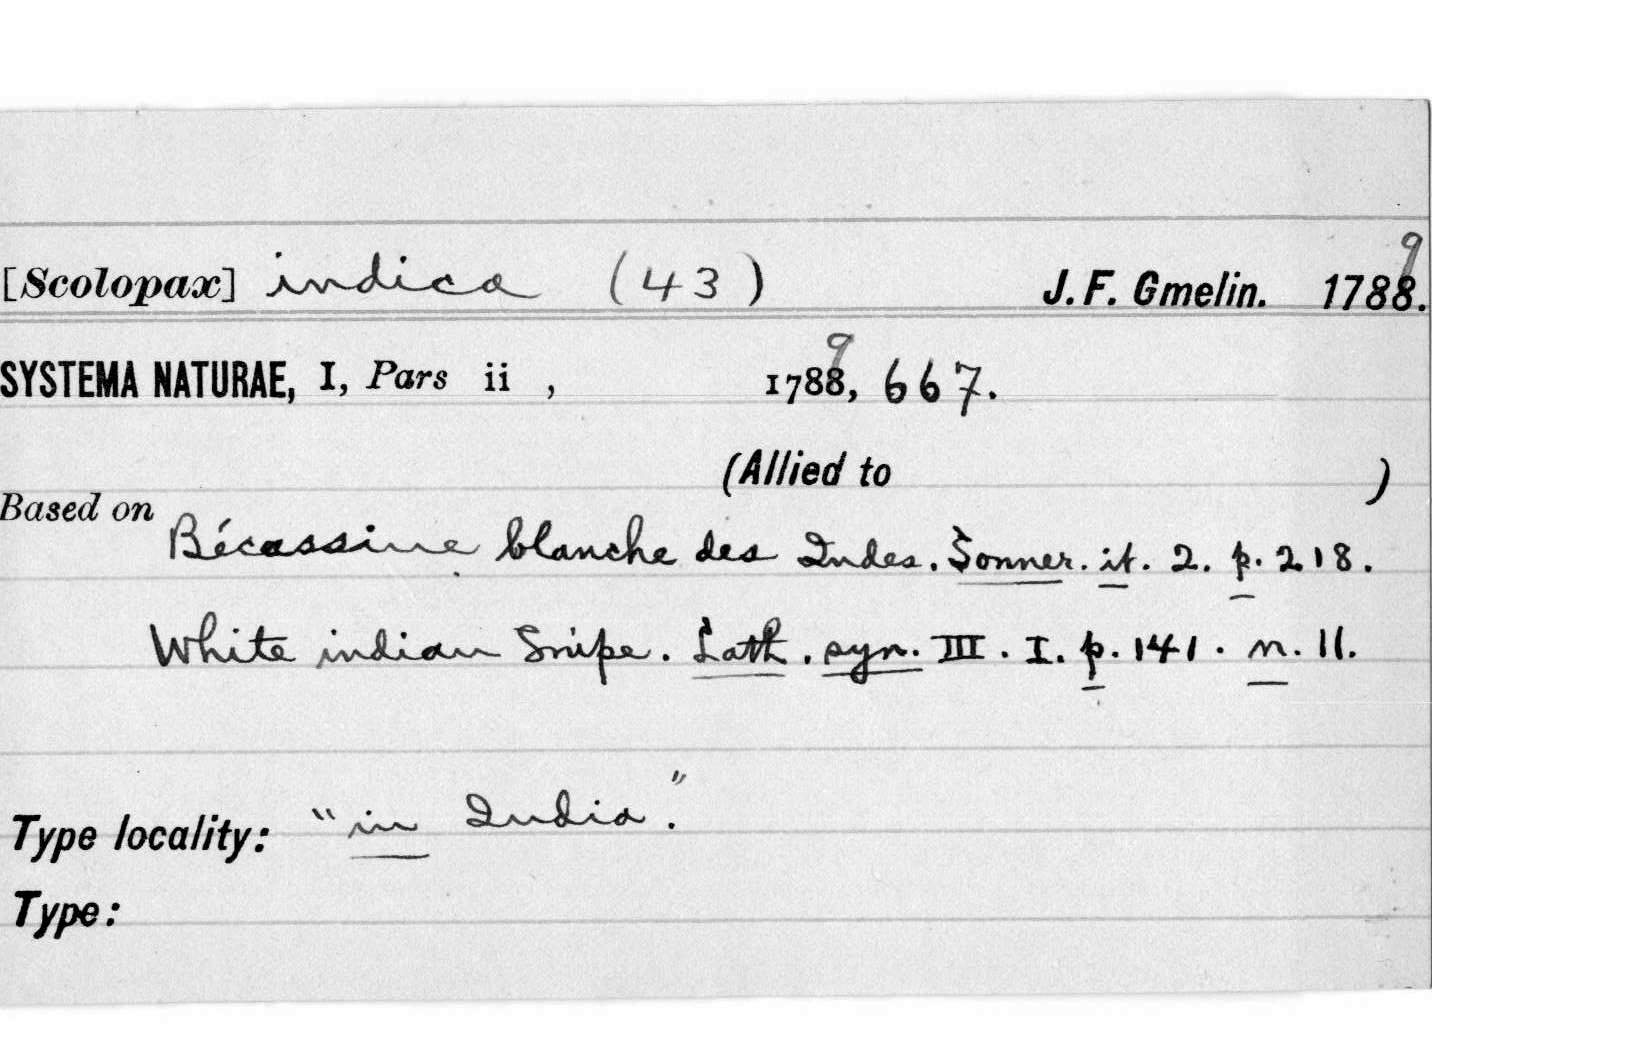 [Scolopax] indica (43) J. F. Gmelin. 1788. 9
SYSTEMA NATURAE, I, Pars ii , 1788, 9 667.
(Allied to )
Based on
Bécassine blanche des Indes. Sonner. it. 2. p. 218.
White indian Snipe. Lath. syn. III. I. p. 141. n. 11.
Type locality: "in India."
Type: